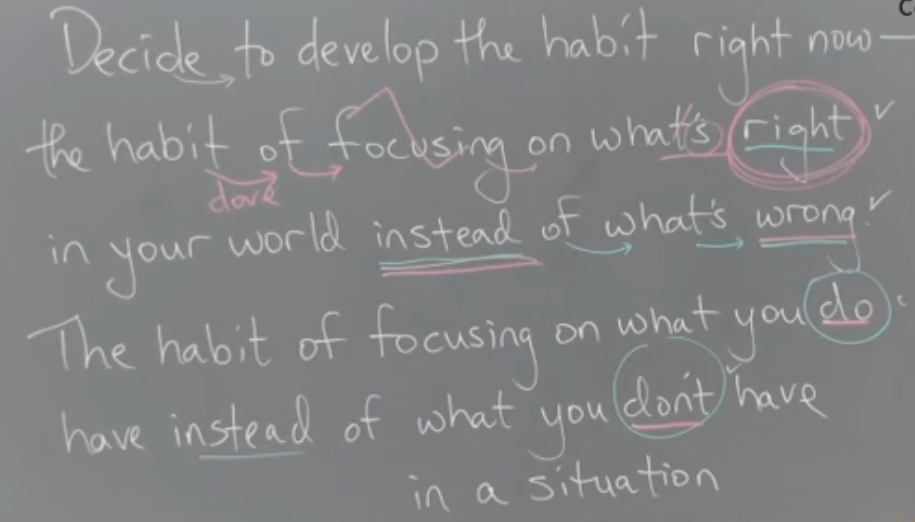 Decide to develop the habit right now—
the habit of focusing on what's right
dave
in your world instead of what's wrong.
The habit of focusing on what you do
have instead of what you don't have
in a situation